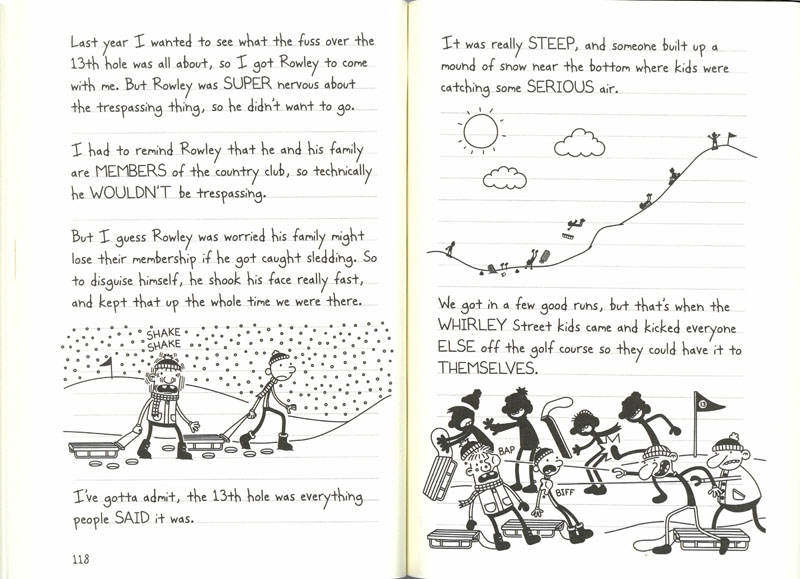 Last year I wanted to see what the fuss over the
13th hole was all about, so I got Rowley to come
with me. But Rowley was SUPER nervous about
the trespassing thing, so he didn't want to go.
I had to remind Rowley that he and his family
are MEMBERS of the country club, so technically
he WOULDN'T be trespassing.
But I guess Rowley was worried his family might
lose their membership if he got caught sledding. So
to disguise himself, he shook his face really fast,
and kept that up the whole time we were there.
SHAKE
SHAKE
I've gotta admit, the 13th hole was everything
people SAID it was.
118
It was really STEEP, and someone built up a
mound of snow near the bottom where kids were
catching some SERIOUS air.
We got in a few good runs, but that's when the
WHIRLEY Street kids came and kicked everyone
ELSE off the golf course so they could have it to
THEMSELVES.
BAP
BIFF
13